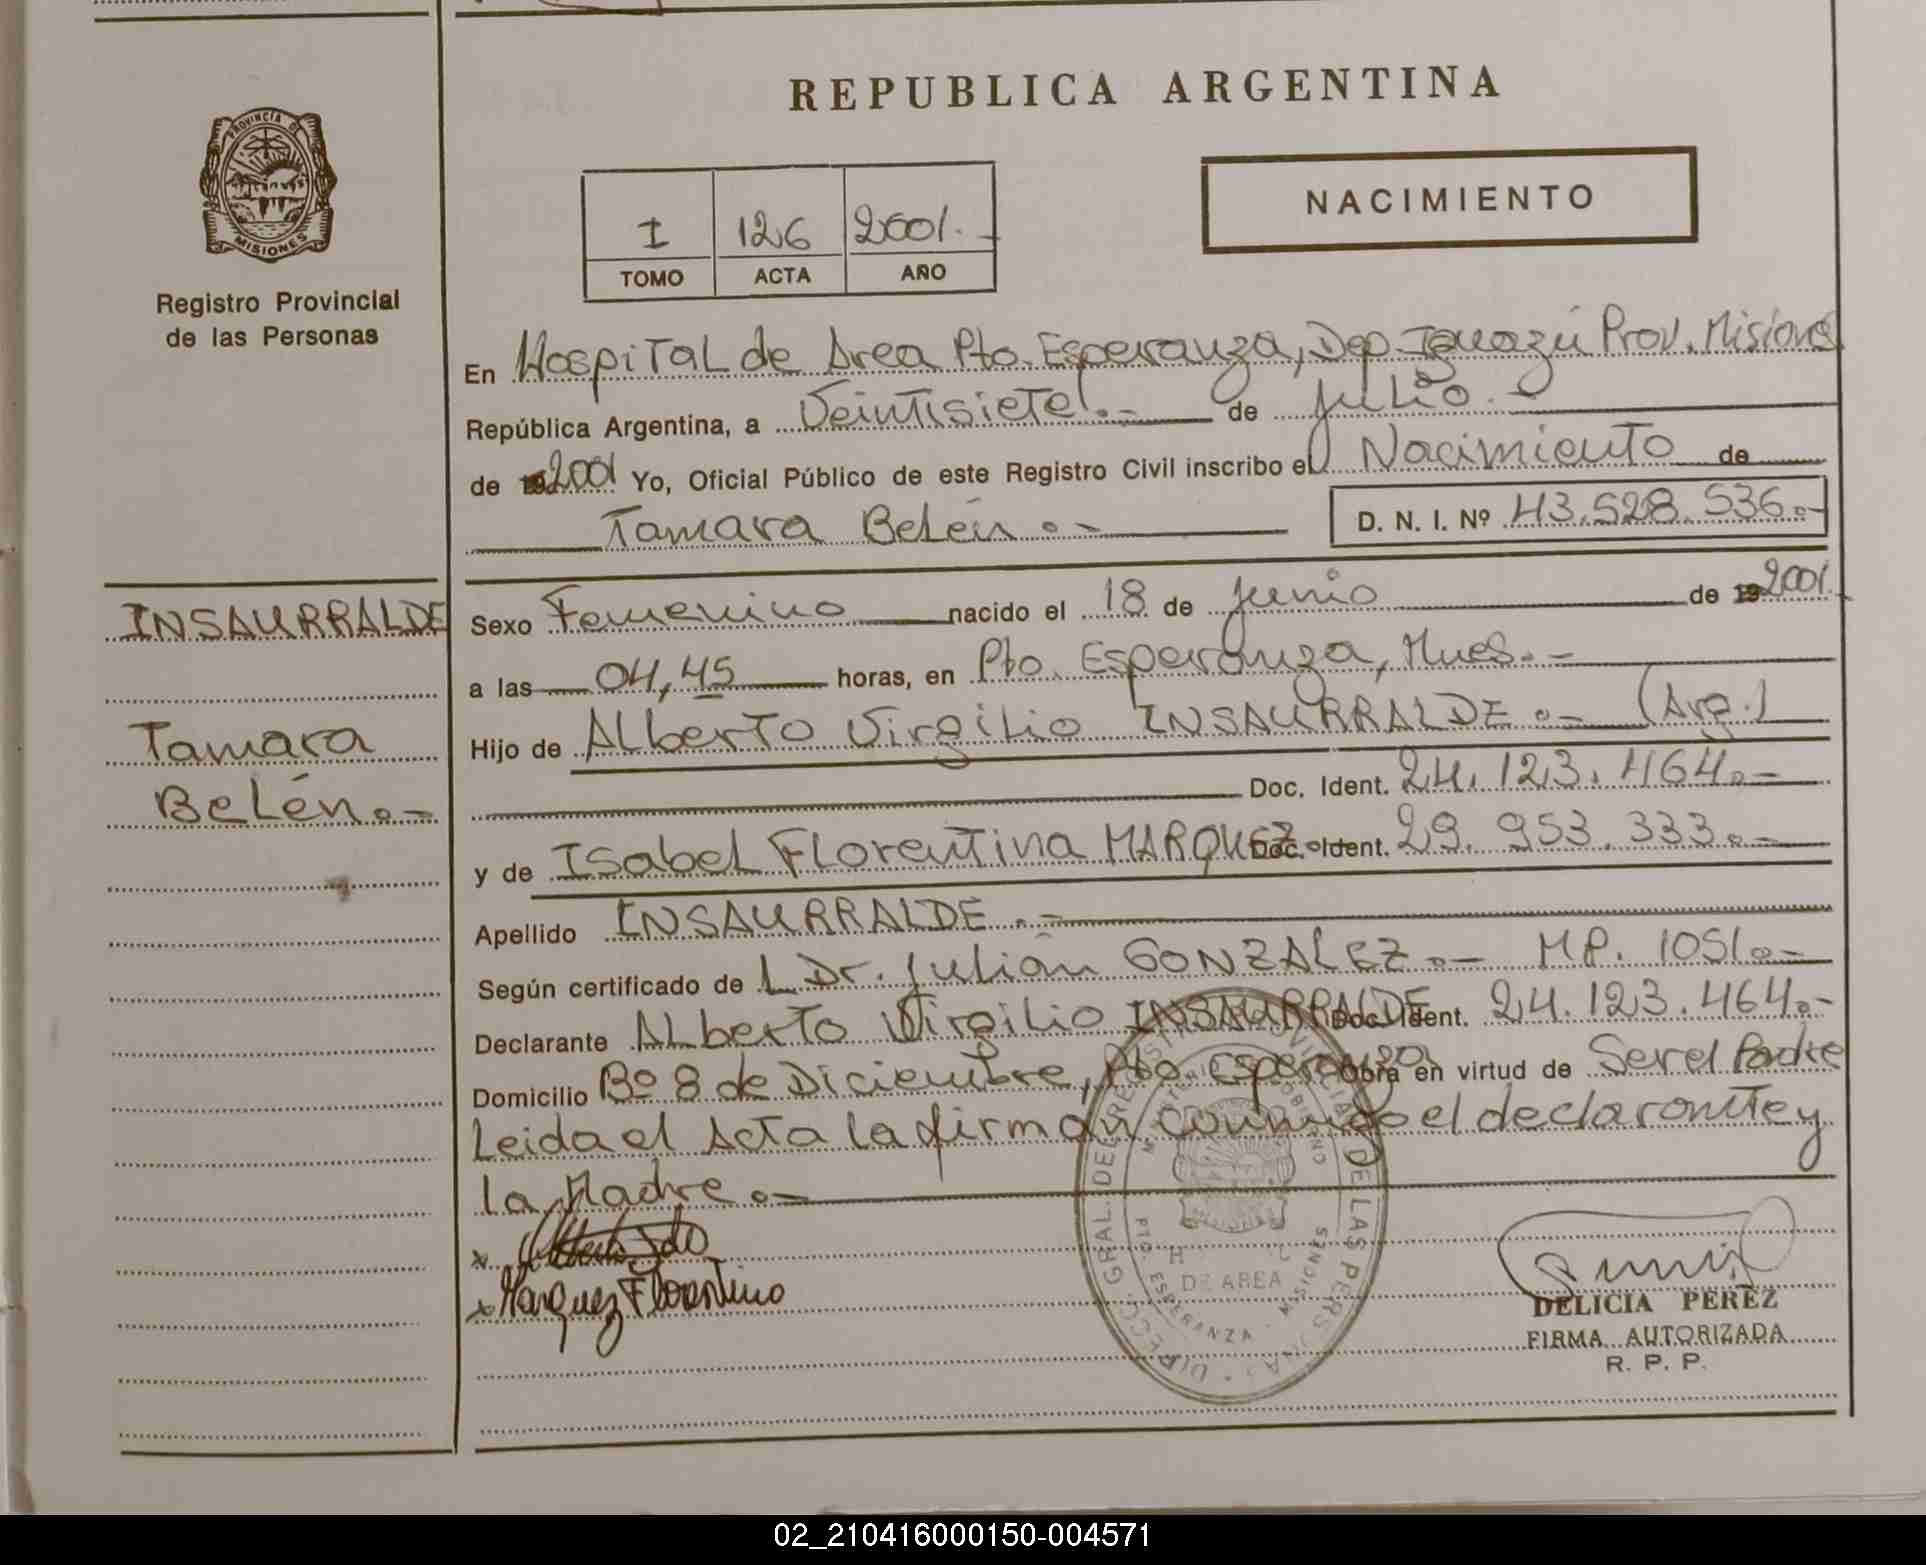 REPUBLICA ARGENTINA
PROVINCIA DE
MISIONES
Registro Provincial
de las Personas
NACIMIENTO
I 126 2001.-
TOMO ACTA AÑO
En Hospital de Area Pto. Esperanza, Dep. Iguazú Prov. Misiones
República Argentina, a Veintisiete.- de Julio.-
de 192001 Yo, Oficial Público de este Registro Civil inscribo el Nacimiento de
Tamara Belén.- D. N. I. Nº 43.528.536.-
INSAURRALDE
Tamara
Belén.-
Sexo Femenino nacido el 18 de Junio de 192001.
a las 04,45 horas, en Pto. Esperanza, Mnes.-
Hijo de Alberto Virgilio INSAURRALDE.- (Arg.)
Doc. Ident. 24.123.464.-
y de Isabel Florentina MARQUEZ.- Doc. Ident. 29.953.333.-
Apellido INSAURRALDE.-
Según certificado de L Dr. Julián GONZALEZ.- MP. 1051.-
Declarante Alberto Virgilio INSAURRALDE Doc. Ident. 24.123.464.-
Domicilio Bº 8 de Diciembre, Pto. Esperanza Obra en virtud de Ser el Padre
Leida el Acta la firman conmigo el declarante y
la Madre.-
x
x Marquez Florentina
DIRECC. GRAL. DEL REGISTRO PROVINCIAL DE LAS PERSONAS
H
DE AREA
PTO. ESPERANZA - MISIONES
DELICIA PEREZ
FIRMA AUTORIZADA
R. P. P.
02_210416000150-004571